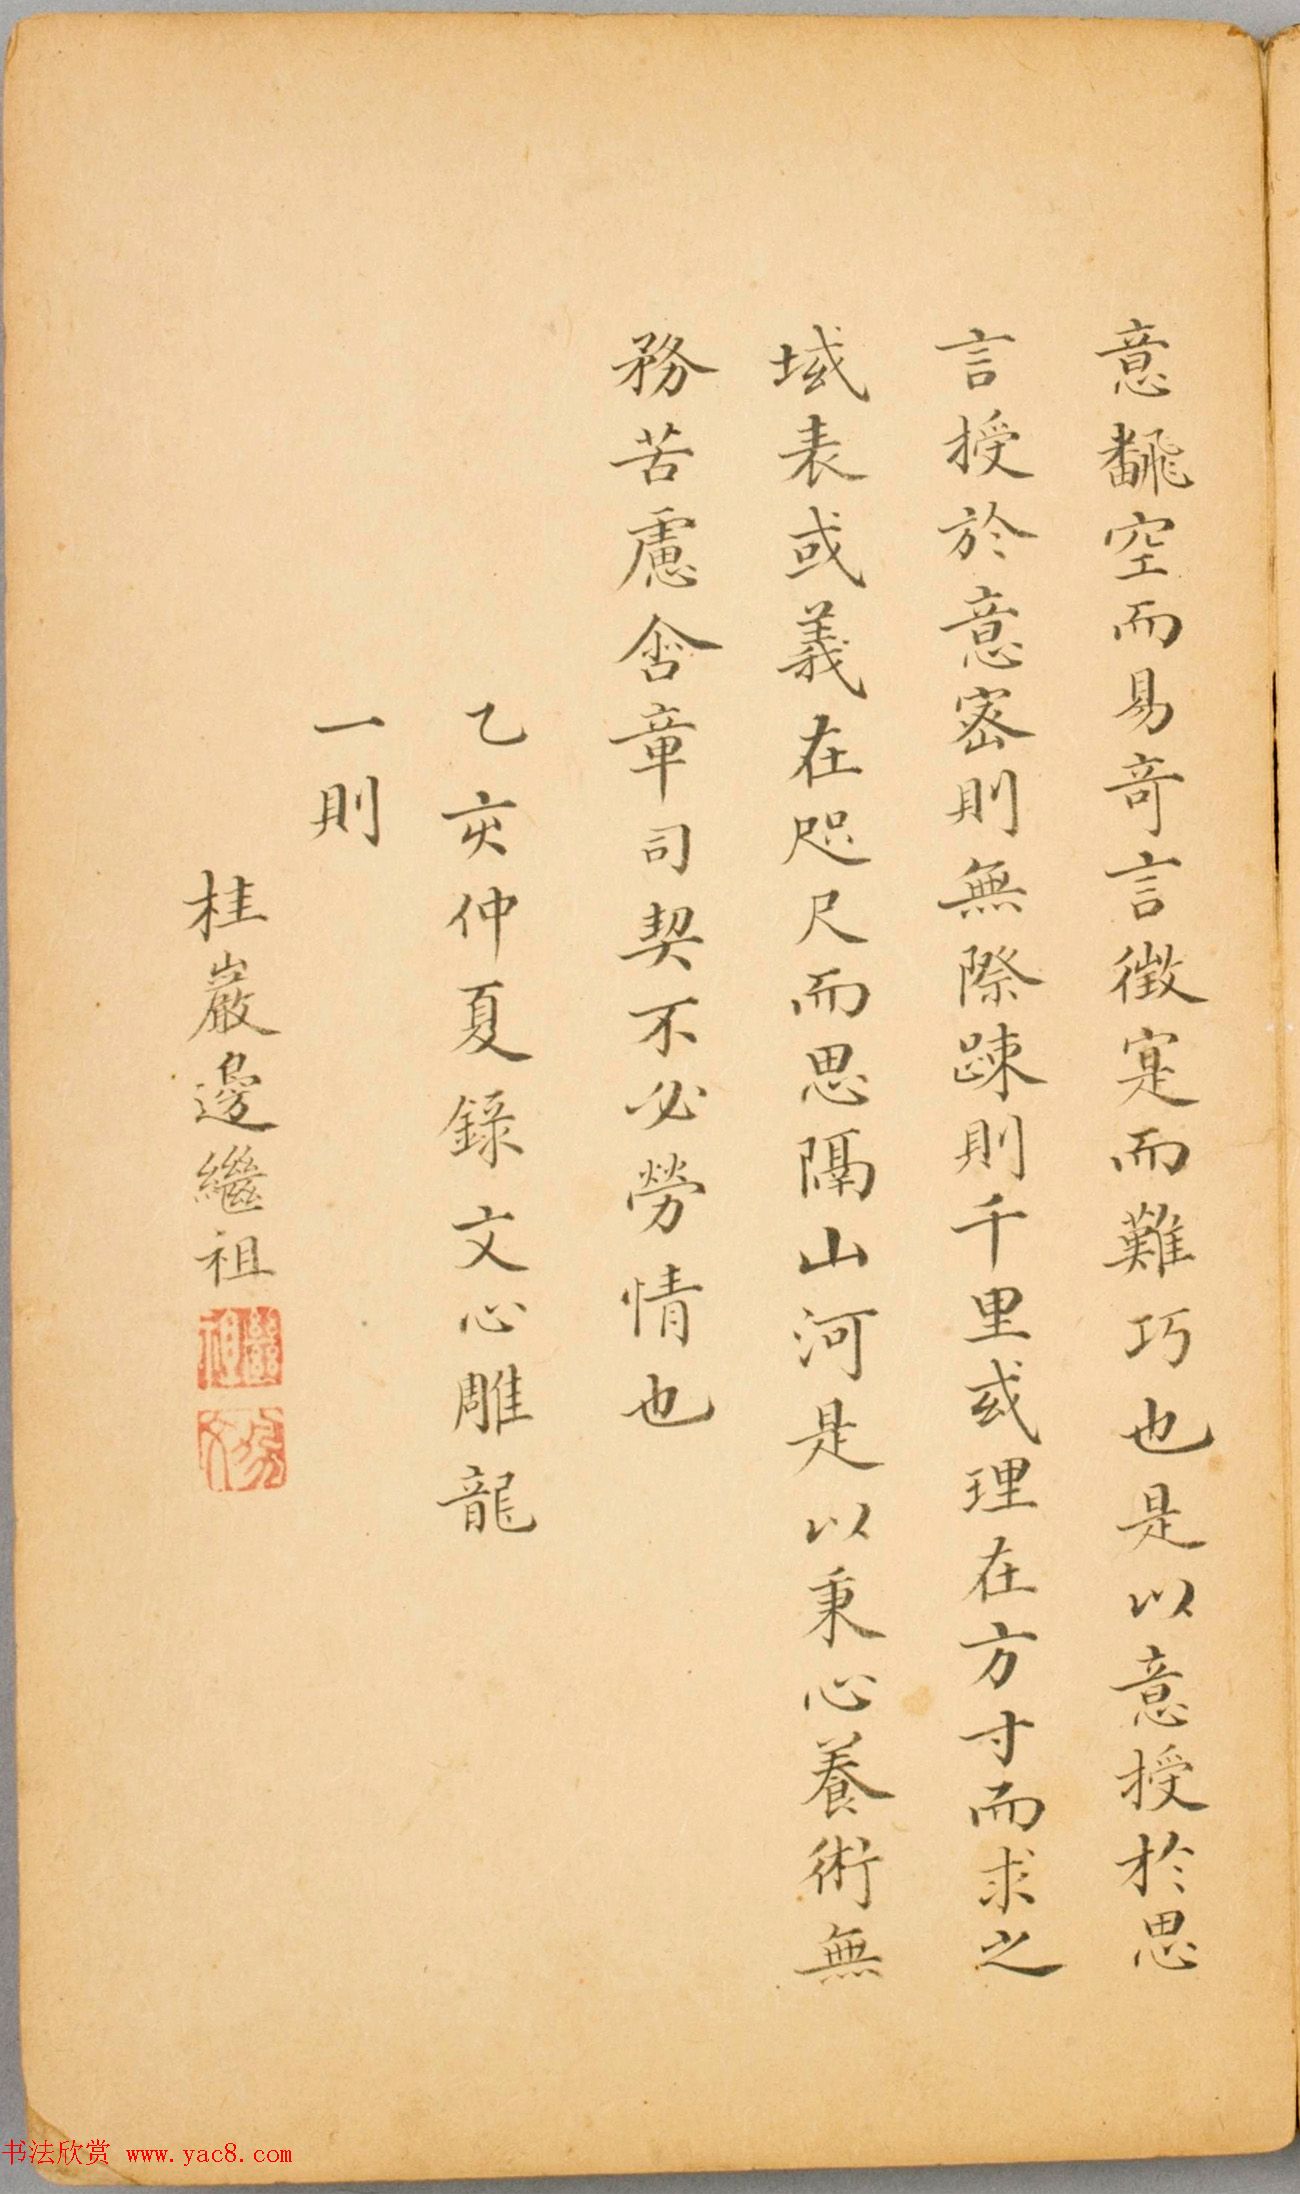 意飜空而易奇言徵寔而難巧也是以意授於思
言授於意密則無際踈則千里或理在方寸而求之
域表或義在咫尺而思隔山河是以秉心養術無
務苦慮含章司契不必勞情也
乙亥仲夏錄文心雕龍
一則
桂巖邊繼祖
书法欣赏 www.yac8.com